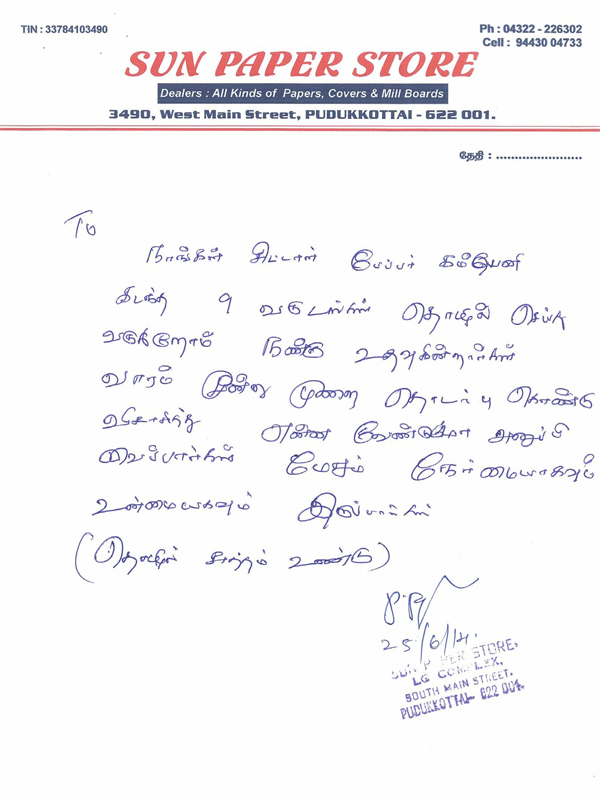 TIN : 33784103490
Ph : 04322 - 226302
Cell : 94430 04733
SUN PAPER STORE
Dealers : All Kinds of Papers, Covers & Mill Boards
3490, West Main Street, PUDUKKOTTAI - 622 001.
தேதி : ........................
To
நாங்கள் சிட்டாள் பேப்பர் கம்பேனி
கடந்த 9 வருடங்கள் தொழில் செய்து
வருகிறோம் நன்கு உதவுகின்றார்கள்
வாரம் மூன்று முறை தொடர்பு கொண்டு
என்ன வேண்டுமோ அனுப்பி
வைப்பார்கள் மேலும் நேர்மையாகவும்
உண்மையகவும் இருப்பார்கள்
(தொழில் சுத்தம் உண்டு)
25/6/14.
SUN PAPER STORE,
LG COMPLEX,
SOUTH MAIN STREET,
PUDUKKOTTAI- 622 001.